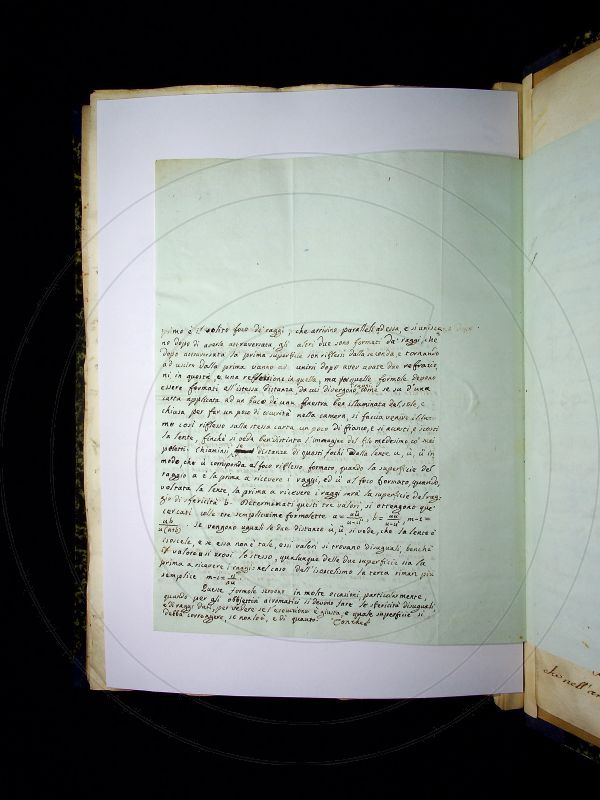 primo è il solito foco de' raggi, che arrivino paralleli ad essa, e si uniscano dopo
no dopo di averla attraversata gli altri due sono formati da' raggi, che
dopo attraversata la prima superficie son riflessi dalla seconda, e tornando
ad uscire dalla prima vanno ad unirsi dopo aver avute due refrazio
ni in questa, e una reflessione in quella, ma quelle formole devono
essere formati all'istessa distanza, da cui divergono, come se su d'una
carta applicata ad un buco di una finestra ben illuminata dal sole, e
chiusa per far un poco di oscurità nella camera, si faccia venire il lu
me così riflesso sulla stessa carta un poco di fianco, e si accosti, e scosti
la lente, finchè si veda ben distinta l'immagine del filo medesimo co' suoi
peletti. Chiaminsi le distanze di questi fochi dalla lente u, ù, ü in
modo, che ù corrisponda al foco riflesso, formato quando la superficie del
raggio a è la prima a ricevere i raggi, ed ü al foco formato, quando,
voltata la lente, la prima a ricevere i raggi sarà la superficie del rag
gio di sfericità b. Determinati questi tre valori, si ottengono que'
cercati colle tre semplicissime formolette a = , b = , m-1 =
ab
u(a+b) . se vengono uguali le due distanze ù, ü, si vede, che la lente è
isoscele, e se essa non è tale, essi valori si trovano disuguali, benchè
il valore u si trovi lo stesso, qualunque delle due superficie sia la
prima a ricevere i raggi: nel caso dell'isoscelismo la terza rimane più
semplice m-1 =
Queste formole servono in molte occasioni, particolarmente,
quando per gli obbiettivi acromatici si devono fare le sfericità disuguali,
e di raggi dati, per vedere se l'esecuzione è giusta, e quale superficie si
debba correggere, se non lo è, e di quanto.
che nell'